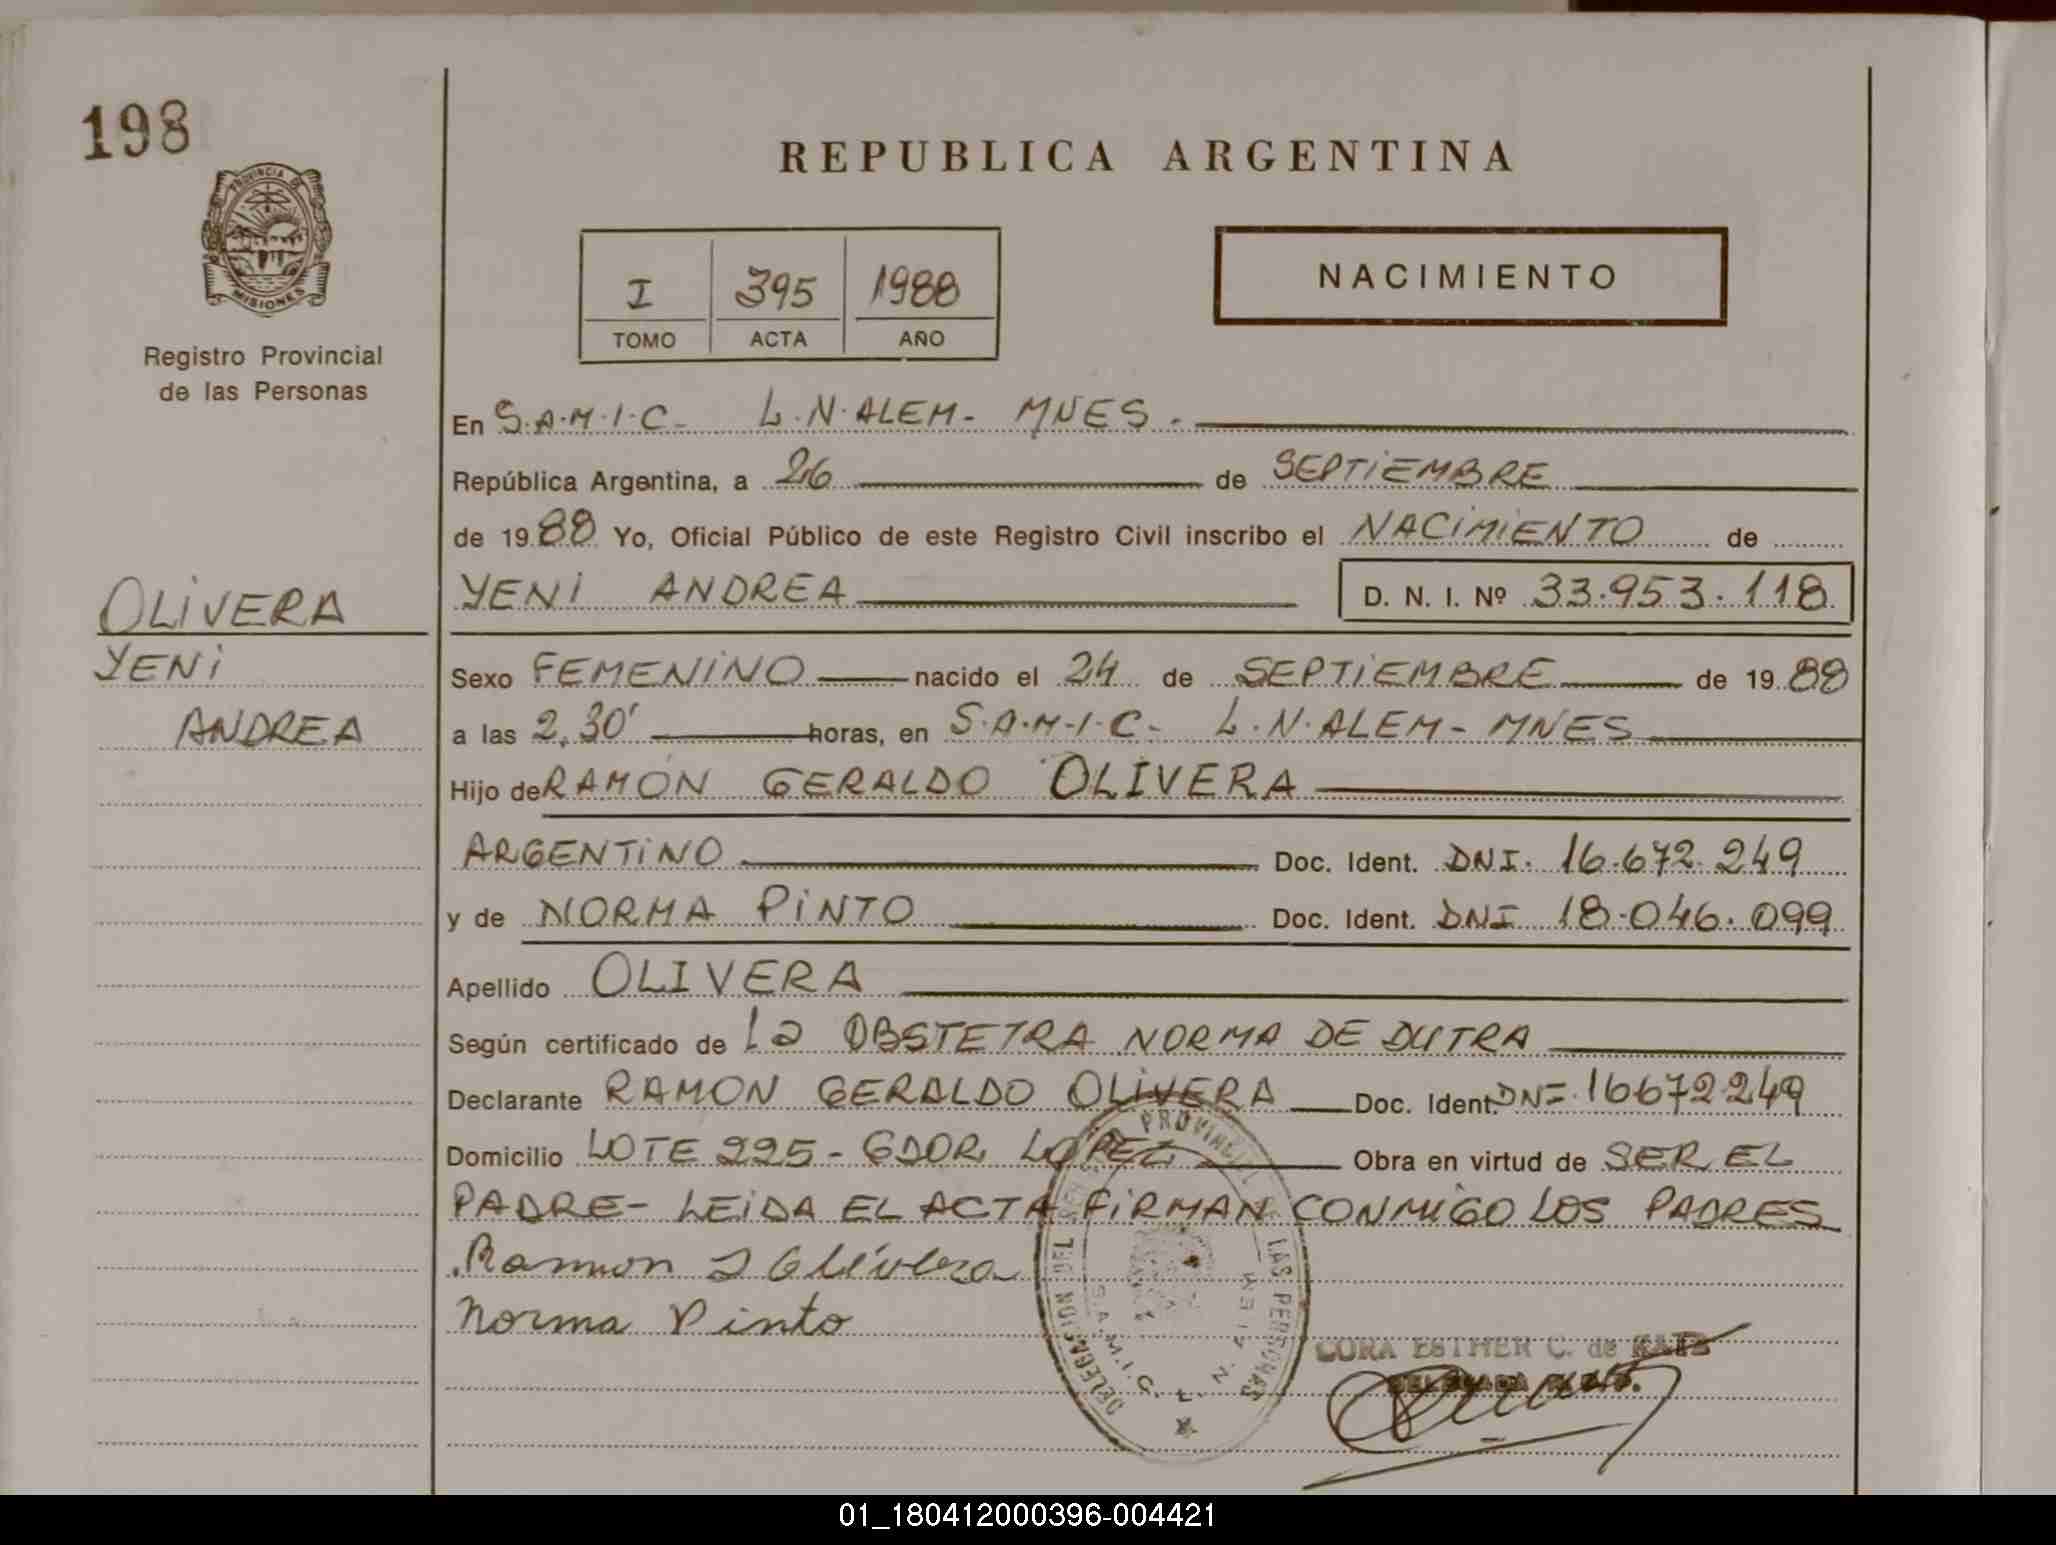 198
REPUBLICA ARGENTINA
PROVINCIA DE
MISIONES
Registro Provincial
de las Personas
I 395 1988
TOMO ACTA AÑO
NACIMIENTO
En S.A.M.I.C- L.N.ALEM- MNES.
República Argentina, a 26 de SEPTIEMBRE
de 1988 Yo, Oficial Público de este Registro Civil inscribo el NACIMIENTO de
YENI ANDREA D. N. I. Nº 33.953.118
OLIVERA
YENI
ANDREA
Sexo FEMENINO nacido el 24 de SEPTIEMBRE de 1988
a las 2,30' horas, en S.A.M.I.C- L.N.ALEM- MNES
Hijo de RAMÓN GERALDO OLIVERA
ARGENTINO Doc. Ident. DNI. 16.672.249
y de NORMA PINTO Doc. Ident. DNI 18.046.099
Apellido OLIVERA
Según certificado de La OBSTETRA NORMA DE DUTRA
Declarante RAMON GERALDO OLIVERA Doc. Ident. DNI 16672249
Domicilio LOTE 225- GDOR LOPEZ Obra en virtud de SER EL
PADRE- LEIDA EL ACTA FIRMAN CONMIGO LOS PADRES
Ramon G Olivera
Norma Pinto
DELEGACION DEL REG. PROVINCIAL DE LAS PERSONAS
S.A.M.I.C. L. N. ALEM
CORA ESTHER C. de KATZ
01_180412000396-004421